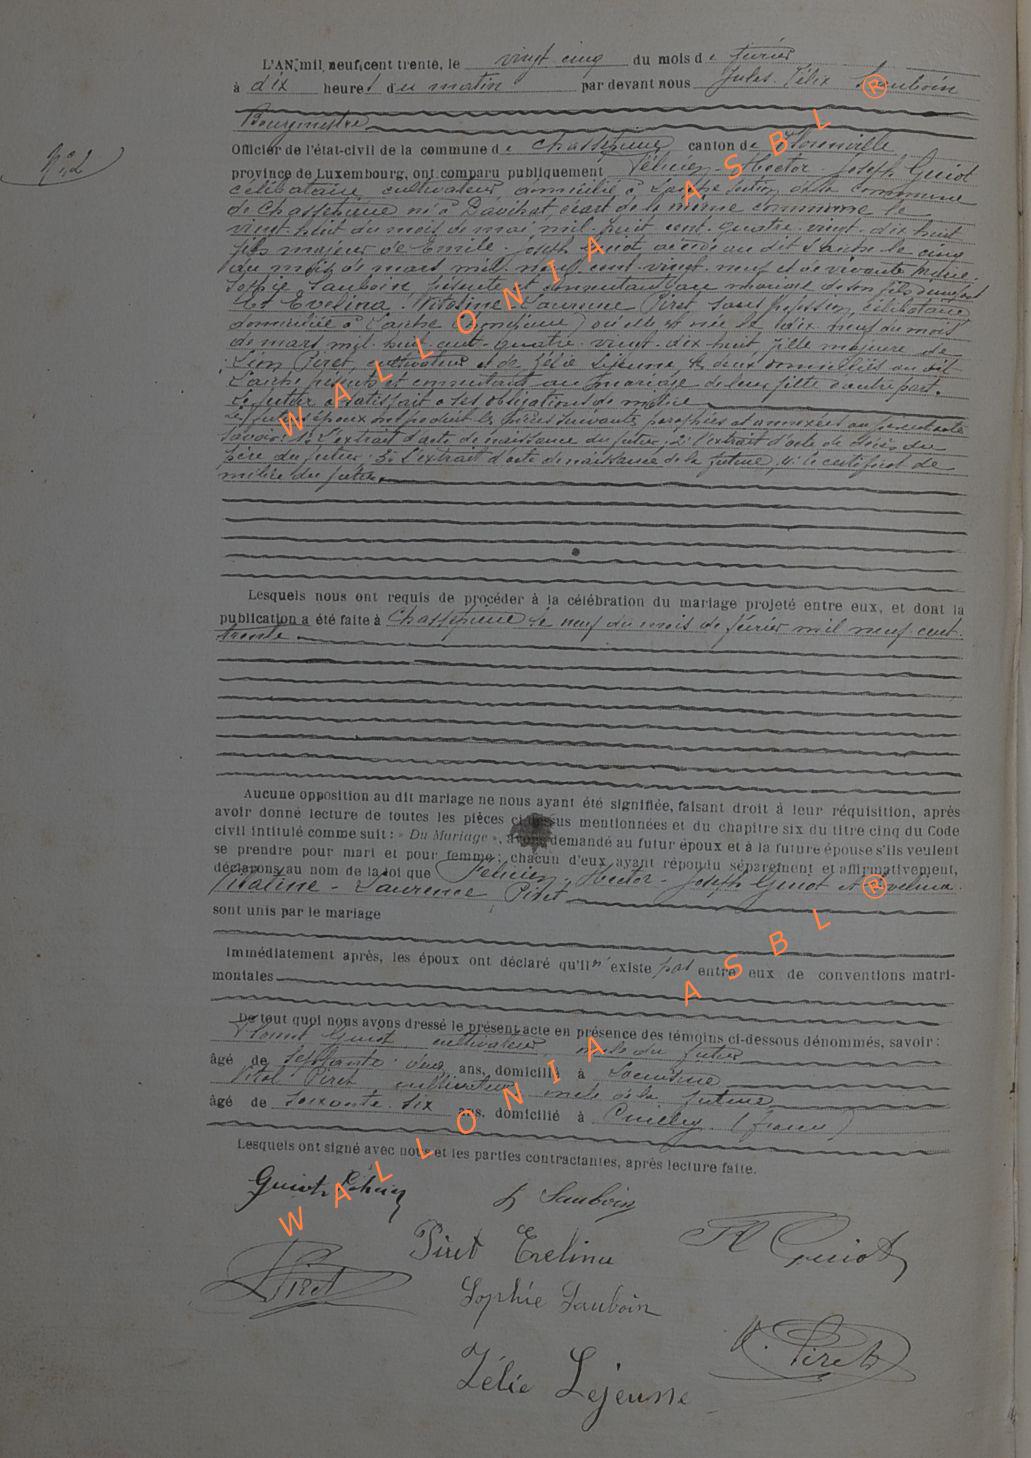 L'AN mil neuf cent trente, le vingt cinq du mois de février
à dix heures du matin par devant nous Jules Félix Sauboin
Bourgmestre
Officier de l'état-civil de la commune de Chassepierre canton de Florenville
N° 2
province de Luxembourg, ont comparu publiquement Félicien-Hector-Joseph Guiot
célibataire, cultivateur domicilié à Laiche section de la commune
de Chassepierre né à écart de la même commune le
vingt huit du mois de mai mil huit cent quatre vingt dix huit
fils majeur de Emile Joseph Guiot décédé au dit Laiche le cinq
du mois de mars mil neuf cent vingt neuf et de vivante Marie
Sophie Sauboin présente et consentant au mariage de son fils d'une part
Et Evelina Vitaline Laurence Piret sans profession, célibataire
domiciliée à Laiche où elle est née le dix neuf du mois
de mars mil huit cent quatre vingt dix huit fille majeure de
Léon Piret, cultivateur et de Zélie Lejeune, les deux domiciliés au dit
Laiche présents et consentants au mariage de leur fille d'autre part.
Le futur a satisfait à ses obligations de milice
Les futurs époux ont produit les pièces suivantes paraphées et annexées au présent acte
savoir: 1: L'extrait d'acte de naissance du futur; 2: l'extrait d'acte de décès du
père du futur; 3: L'extrait d'acte de naissance de la future; 4: le certificat de
milice du futur.
Lesquels nous ont requis de procéder à la célébration du mariage projeté entre eux, et dont la
publication a été faite à Chassepierre le neuf du mois de février mil neuf cent
trente
Aucune opposition au dit mariage ne nous ayant été signifiée, faisant droit à leur réquisition, après
avoir donné lecture de toutes les pièces ci-dessus mentionnées et du chapitre six du titre cinq du Code
civil intitulé comme suit : « Du Mariage », avons demandé au futur époux et à la future épouse s'ils veulent
se prendre pour mari et pour femme; chacun d'eux ayant répondu séparément et affirmativement,
déclarons au nom de la loi que Félicien-Hector-Joseph Guiot et Evelina
Vitaline - Laurence Piret
sont unis par le mariage
Immédiatement après, les époux ont déclaré qu'il n'existe pas entre eux de conventions matri-
moniales
De tout quoi nous avons dressé le présent acte en présence des témoins ci-dessous dénommés, savoir :
Guiot cultivateur, oncle du futur
âgé de septante ans, domicilié à
Vital Piret, cultivateur oncle de la future
âgé de soixante six ans, domicilié à (france)
Lesquels ont signé avec nous et les parties contractantes, après lecture faite.
Guiot Félicien Sauboin
Piret Evelina Guiot
Piret
Sophie Sauboin
V. Piret
Zélie Lejeune
WALLONIA ASBL ®
WALLONIA ASBL ®